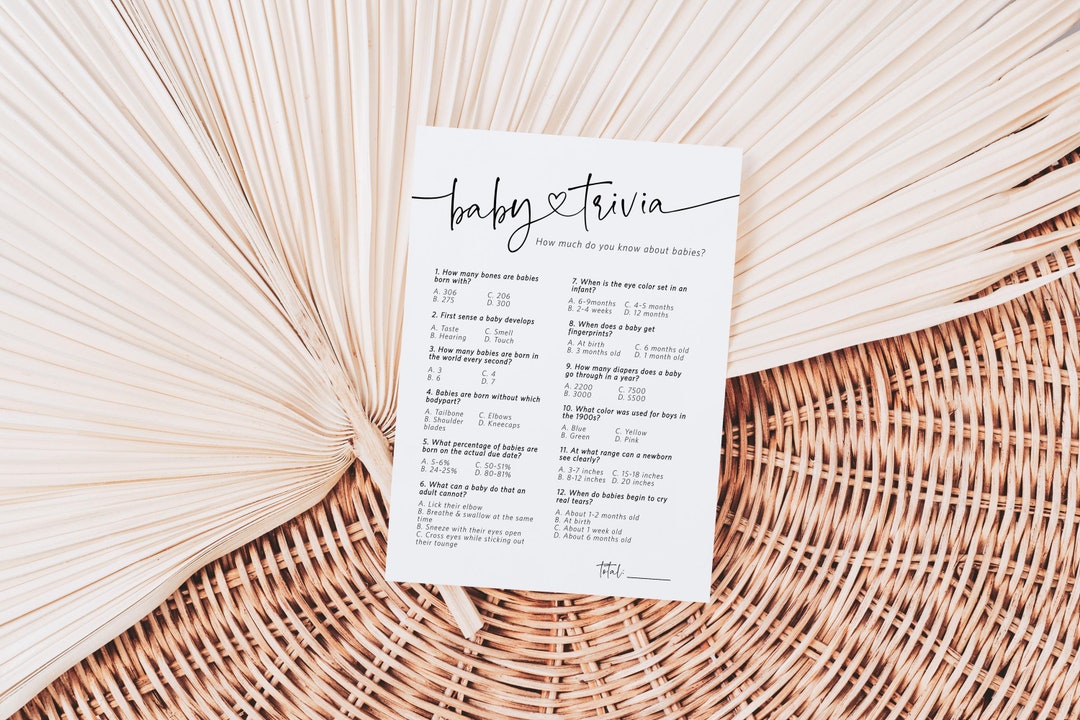 baby trivia
How much do you know about babies?
1. How many bones are babies
born with?
A. 306 C. 206
B. 275 D. 300
2. First sense a baby develops
A. Taste C. Smell
B. Hearing D. Touch
3. How many babies are born in
the world every second?
A. 3 C. 4
B. 6 D. 7
4. Babies are born without which
bodypart?
A. Tailbone C. Elbows
B. Shoulder D. Kneecaps
blades
5. What percentage of babies are
born on the actual due date?
A. 5-6% C. 50-51%
B. 24-25% D. 80-81%
6. What can a baby do that an
adult cannot?
A. Lick their elbow
B. Breathe & swallow at the same
time
B. Sneeze with their eyes open
C. Cross eyes while sticking out
their tounge
7. When is the eye color set in an
infant?
A. 6-9months C. 4-5 months
B. 2-4 weeks D. 12 months
8. When does a baby get
fingerprints?
A. At birth C. 6 months old
B. 3 months old D. 1 month old
9. How many diapers does a baby
go through in a year?
A. 2200 C. 7500
B. 3000 D. 5500
10. What color was used for boys in
the 1900s?
A. Blue C. Yellow
B. Green D. Pink
11. At what range can a newborn
see clearly?
A. 3-7 inches C. 15-18 inches
B. 8-12 inches D. 20 inches
12. When do babies begin to cry
real tears?
A. About 1-2 months old
B. At birth
C. About 1 week old
D. About 6 months old
total: